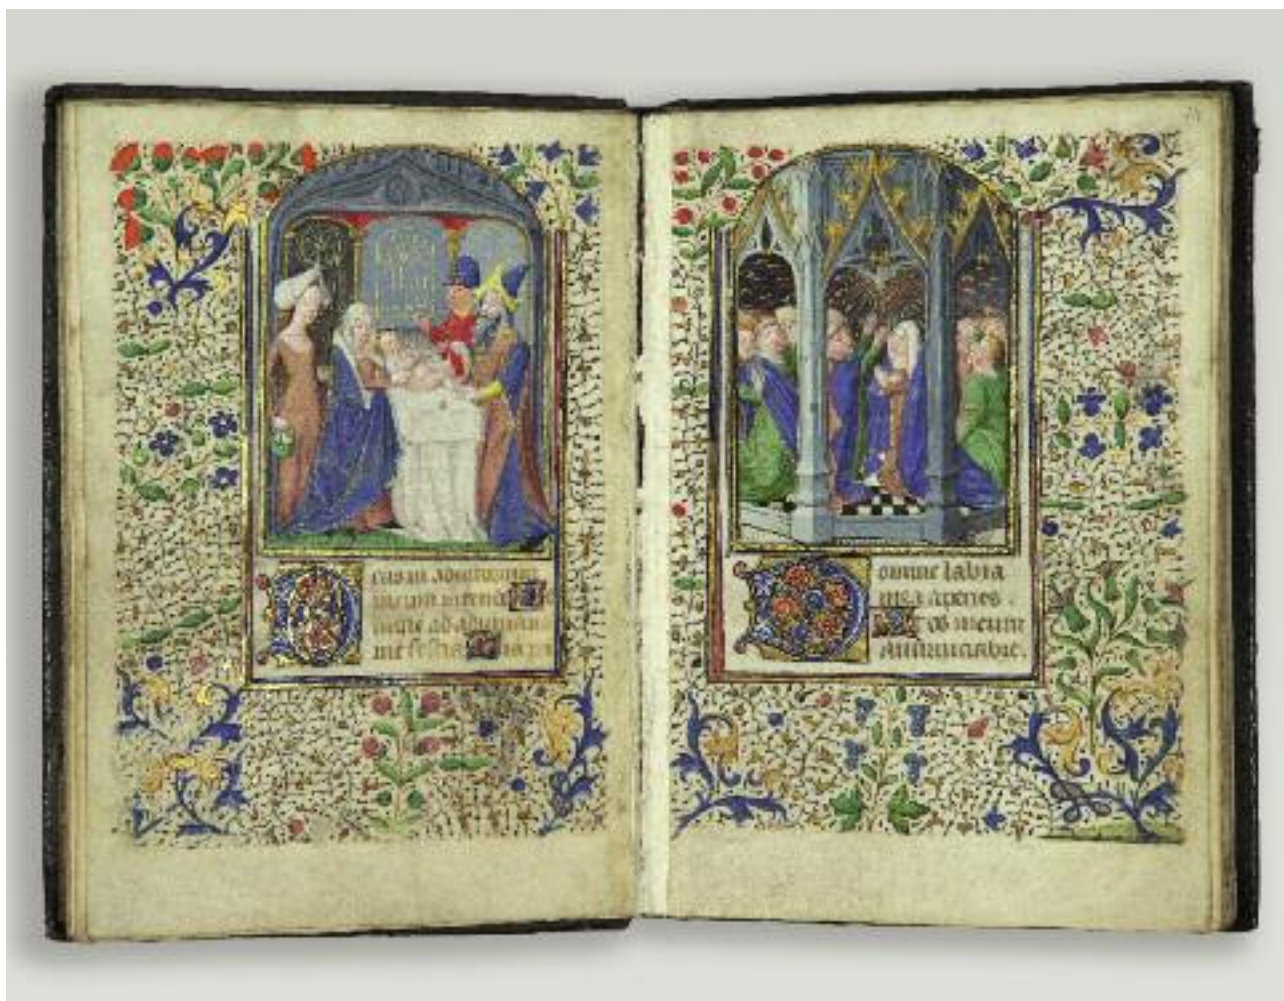 Deus in adiutorium
meum intende
mine ad adiuvan
me festina
Domine labia
mea aperies .
Et os meum
annunciabit.